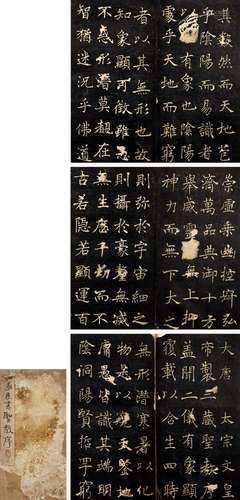 其數然而天地苞
乎陰陽而易識者
以有象也陰陽
處乎天地而難窮
者以其無形也故
知象顯可徵雖愚
不惑形潛莫覩在
智猶迷況乎佛道
崇虛乘幽控寂弘
濟萬品典御十方
舉威靈而無上抑
神力而無下大之
則彌於宇宙細之
則攝於豪釐無滅
無生歷千劫而不
古若隱若顯運百
大唐太宗文皇
帝製三藏聖教序
蓋聞二儀有象顯
覆載以含生四時
無形潛寒暑以化
物是以窺天鑑地
庸愚皆識其端明
陰洞陽賢哲罕窮
聖教序